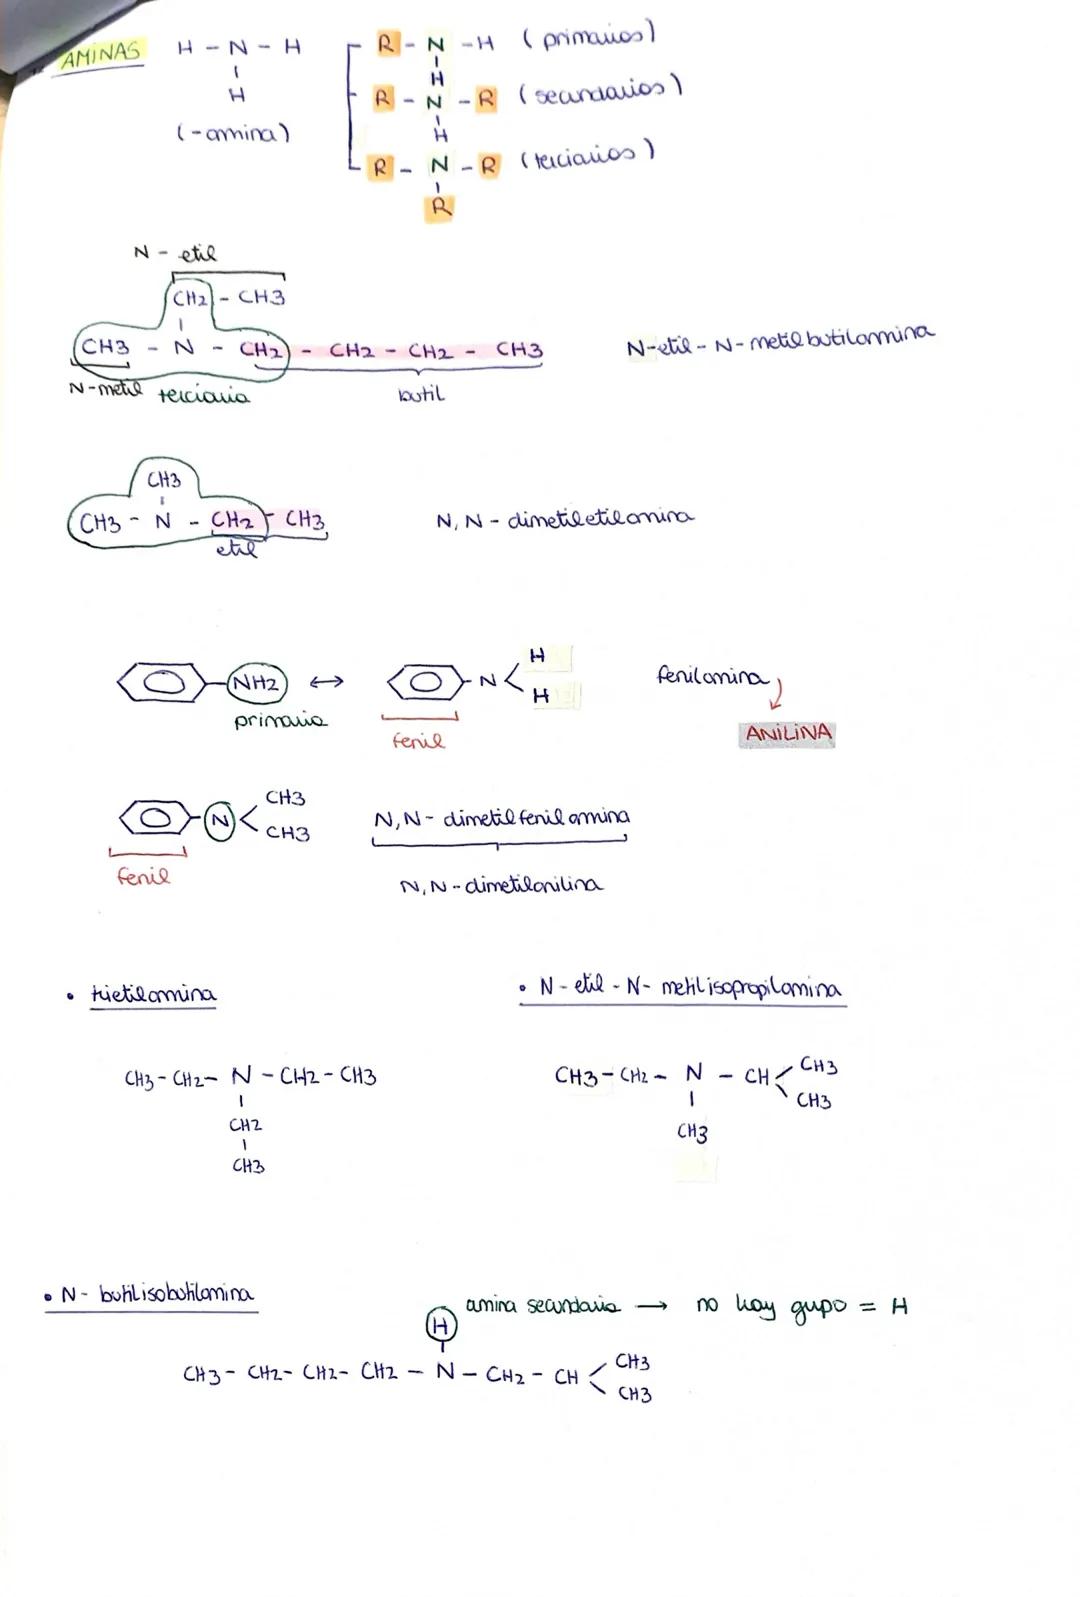 AMINAS
H - N - H
H
(-amina)
R - N - H (primarios)
H
R - N - R (secundarios)
H
R - N - R (terciarios)
R
N - etil
CH2 - CH3
CH3 - N - CH2 - CH2 - CH2 - CH3
N-etil - N-metilbutilamina
N-metil terciaria
butil
CH3
CH3 - N - CH2 - CH3
N, N - dimetiletilamina
etil
NH2 ↔ N H
H
primaria
fenil
fenilamina,
ANILINA
N CH3
CH3
fenil
N, N - dimetilfenilamina
N, N - dimetilanilina
• trietilamina
CH3 - CH2 - N - CH2 - CH3
CH2
CH3
• N - etil - N - metilisopropilamina
CH3 - CH2 - N - CH CH3
CH3
CH3
• N - butilisobutilamina
H
amina secundaria → no hay gupo = H
CH3 - CH2 - CH2 - CH2 - N - CH2 - CH CH3
CH3